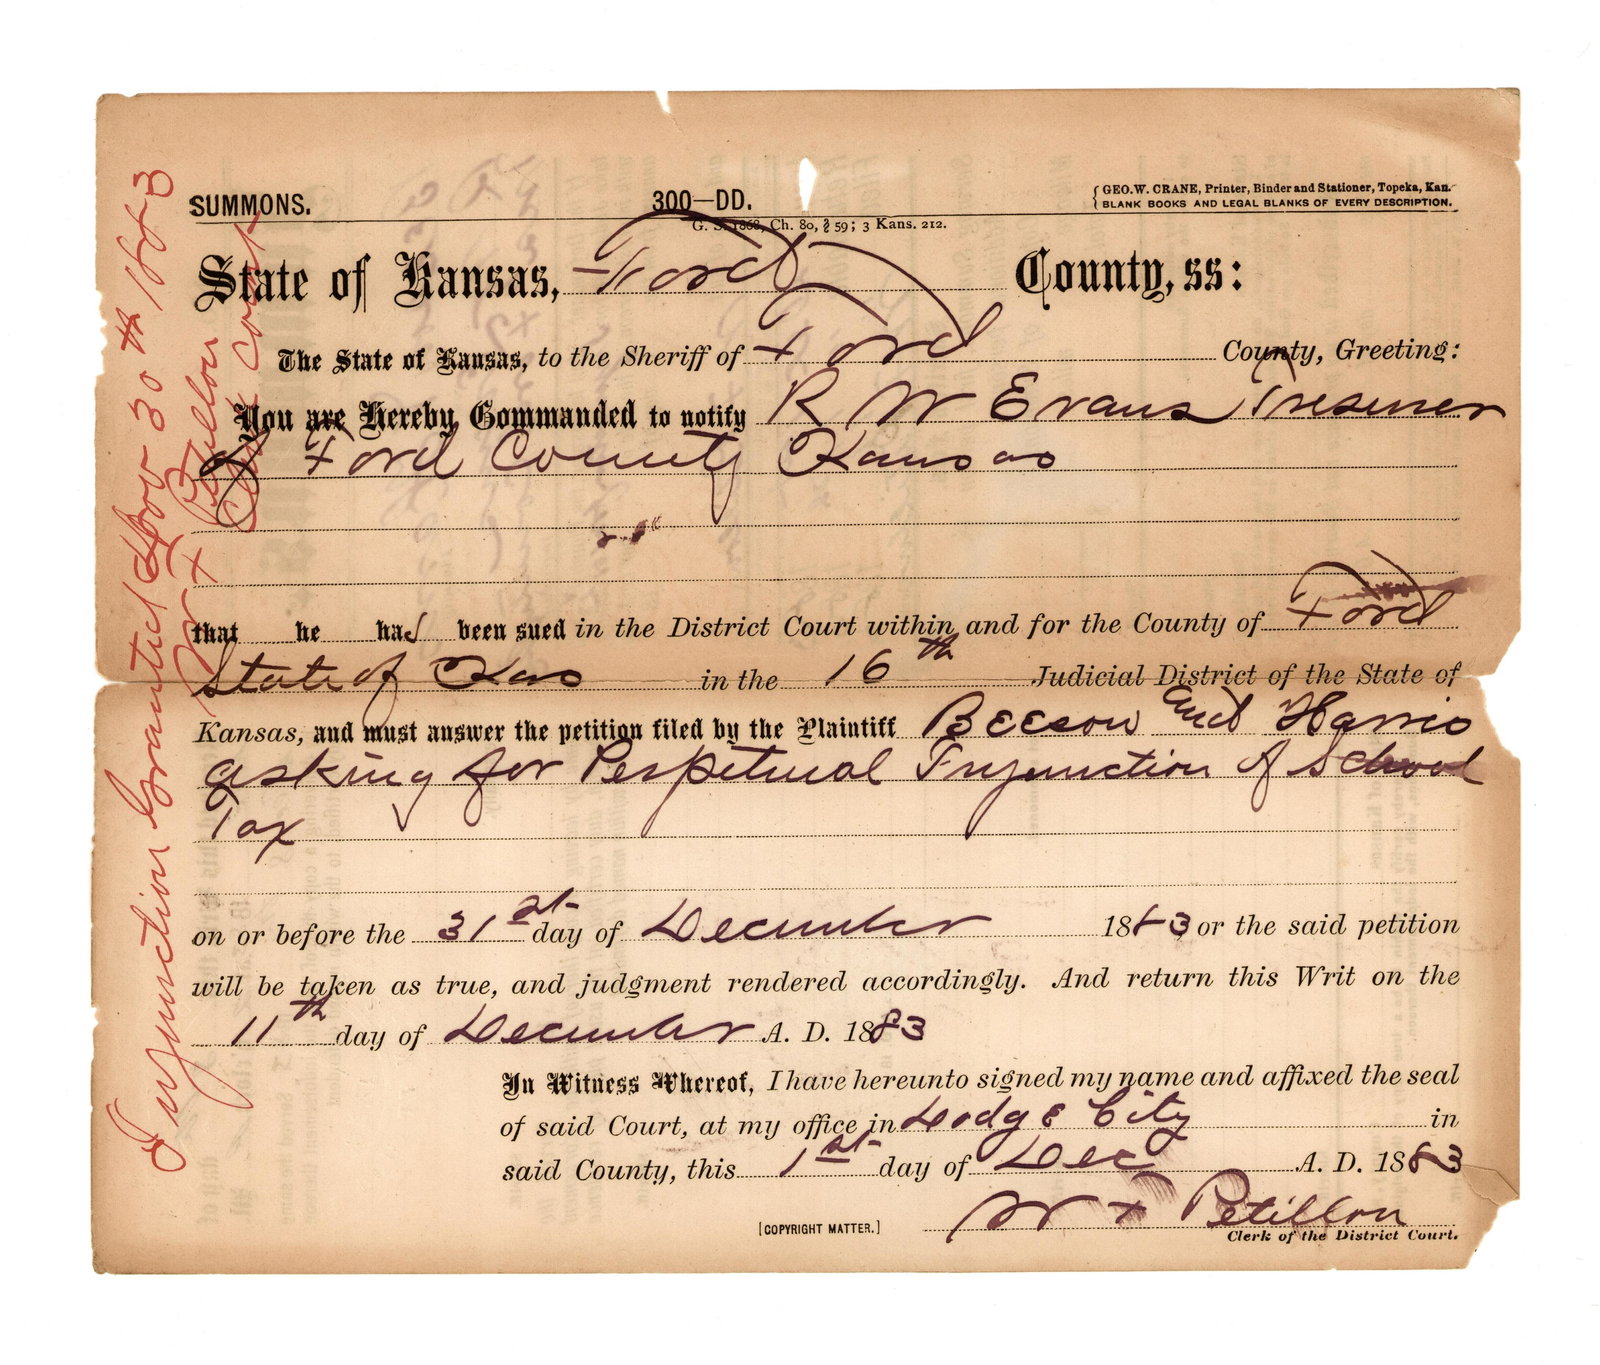 SUMMONS.
300—DD.
GEO. W. CRANE, Printer, Binder and Stationer, Topeka, Kan.
BLANK BOOKS AND LEGAL BLANKS OF EVERY DESCRIPTION.
G. S. 1868, Ch. 80, § 59; 3 Kans. 212.
State of Kansas, Ford County, ss:
The State of Kansas, to the Sheriff of Ford County, Greeting:
You are Hereby Commanded to notify R W Evans Tresurer
of Ford County Kansas
that he had been sued in the District Court within and for the County of Ford
State of Kas in the 16th Judicial District of the State of
Kansas, and must answer the petition filed by the Plaintiff Beeson and Harris
asking for Perpetual Injunction of School
Tax
on or before the 31st day of December 1883 or the said petition
will be taken as true, and judgment rendered accordingly. And return this Writ on the
11th day of December A. D. 1883
In Witness Whereof, I have hereunto signed my name and affixed the seal
of said Court, at my office in Dodge City in
said County, this 1st day of Dec A. D. 1883
W F Petillon
[COPYRIGHT MATTER.]
Clerk of the District Court.
Injunction Granted Nov 30th 1883
W F Petillon
Clerk Court